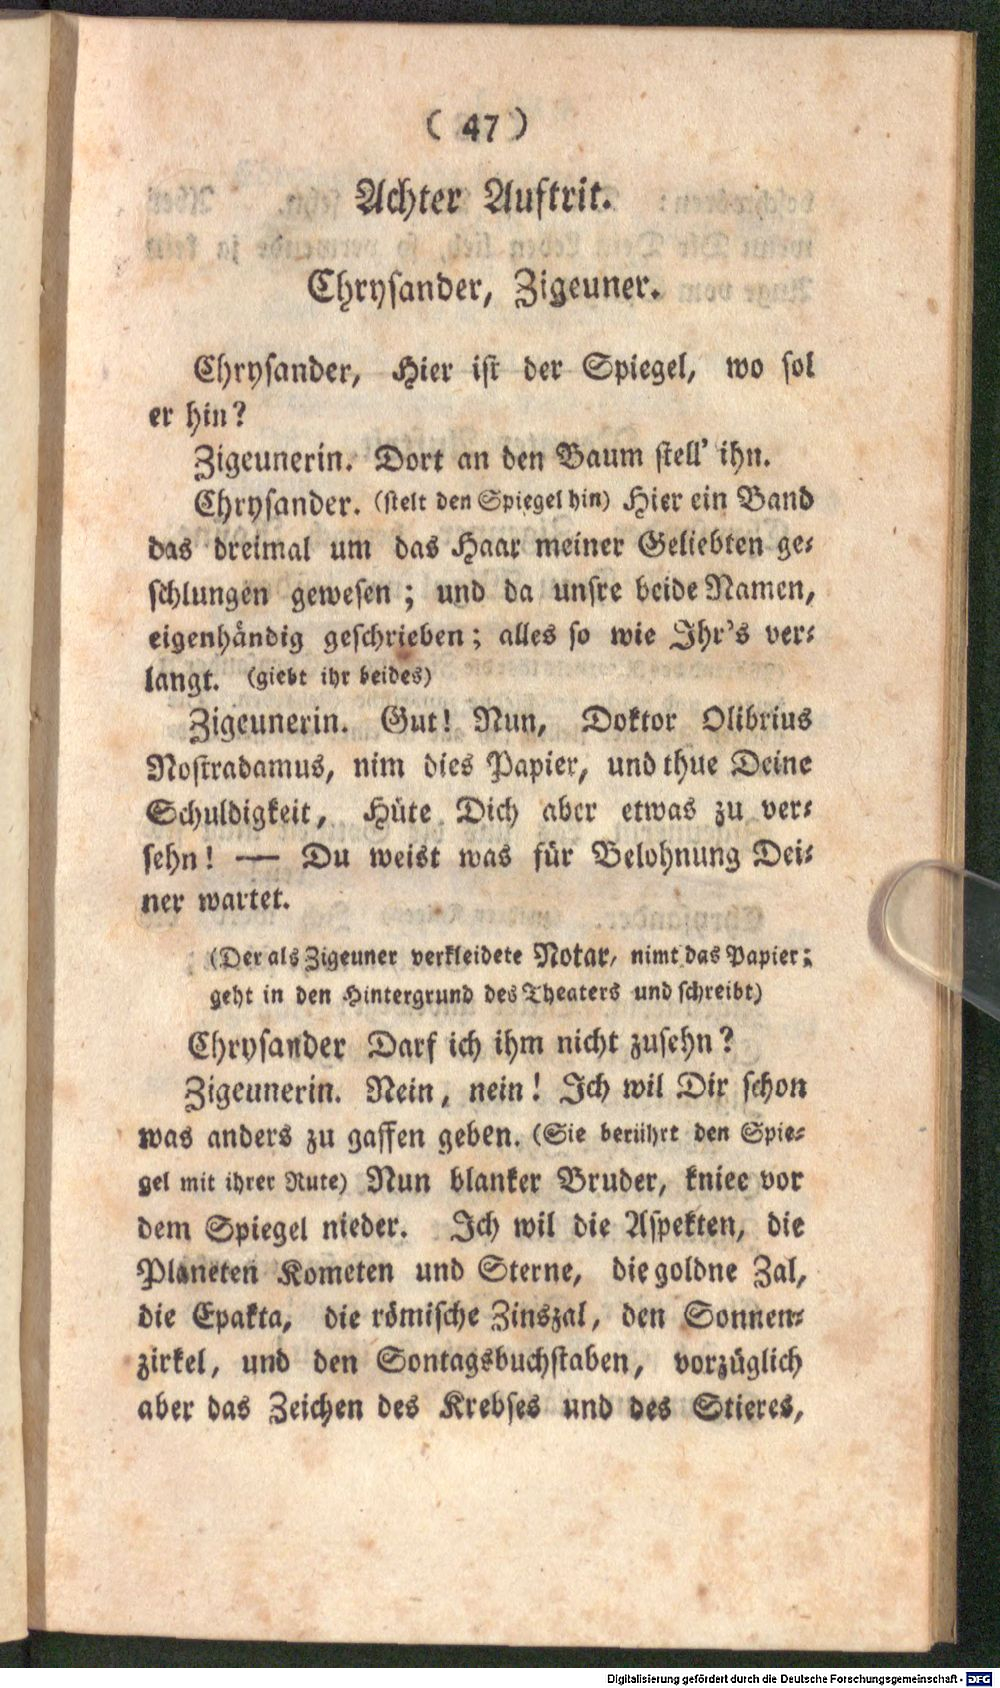 ( 47 )
Achter Auftrit.
Chrysander, Zigeuner.
Chrysander, Hier ist der Spiegel, wo sol
er hin?
Zigeunerin. Dort an den Baum stell' ihn.
Chrysander. (stelt den Spiegel hin) Hier ein Band
das dreimal um das Haar meiner Geliebten ge-
schlungen gewesen; und da unsre beide Namen,
eigenhändig geschrieben; alles so wie Ihr's ver-
langt. (giebt ihr beides)
Zigeunerin. Gut! Nun, Doktor Olibrius
Nostradamus, nim dies Papier, und thue Deine
Schuldigkeit, Hüte Dich aber etwas zu ver-
sehn! — Du weist was für Belohnung Dei-
ner wartet.
(Der als Zigeuner verkleidete Notar, nimt das Papier;
geht in den Hintergrund des Theaters und schreibt)
Chrysander Darf ich ihm nicht zusehn?
Zigeunerin. Nein, nein! Ich wil Dir schon
was anders zu gaffen geben. (Sie berührt den Spie-
gel mit ihrer Rute) Nun blanker Bruder, kniee vor
dem Spiegel nieder. Ich wil die Aspekten, die
Planeten Kometen und Sterne, die goldne Zal,
die Epakta, die römische Zinszal, den Sonnen-
zirkel, und den Sontagsbuchstaben, vorzüglich
aber das Zeichen des Krebses und des Stieres,
Digitalisierung gefördert durch die Deutsche Forschungsgemeinschaft - DFG